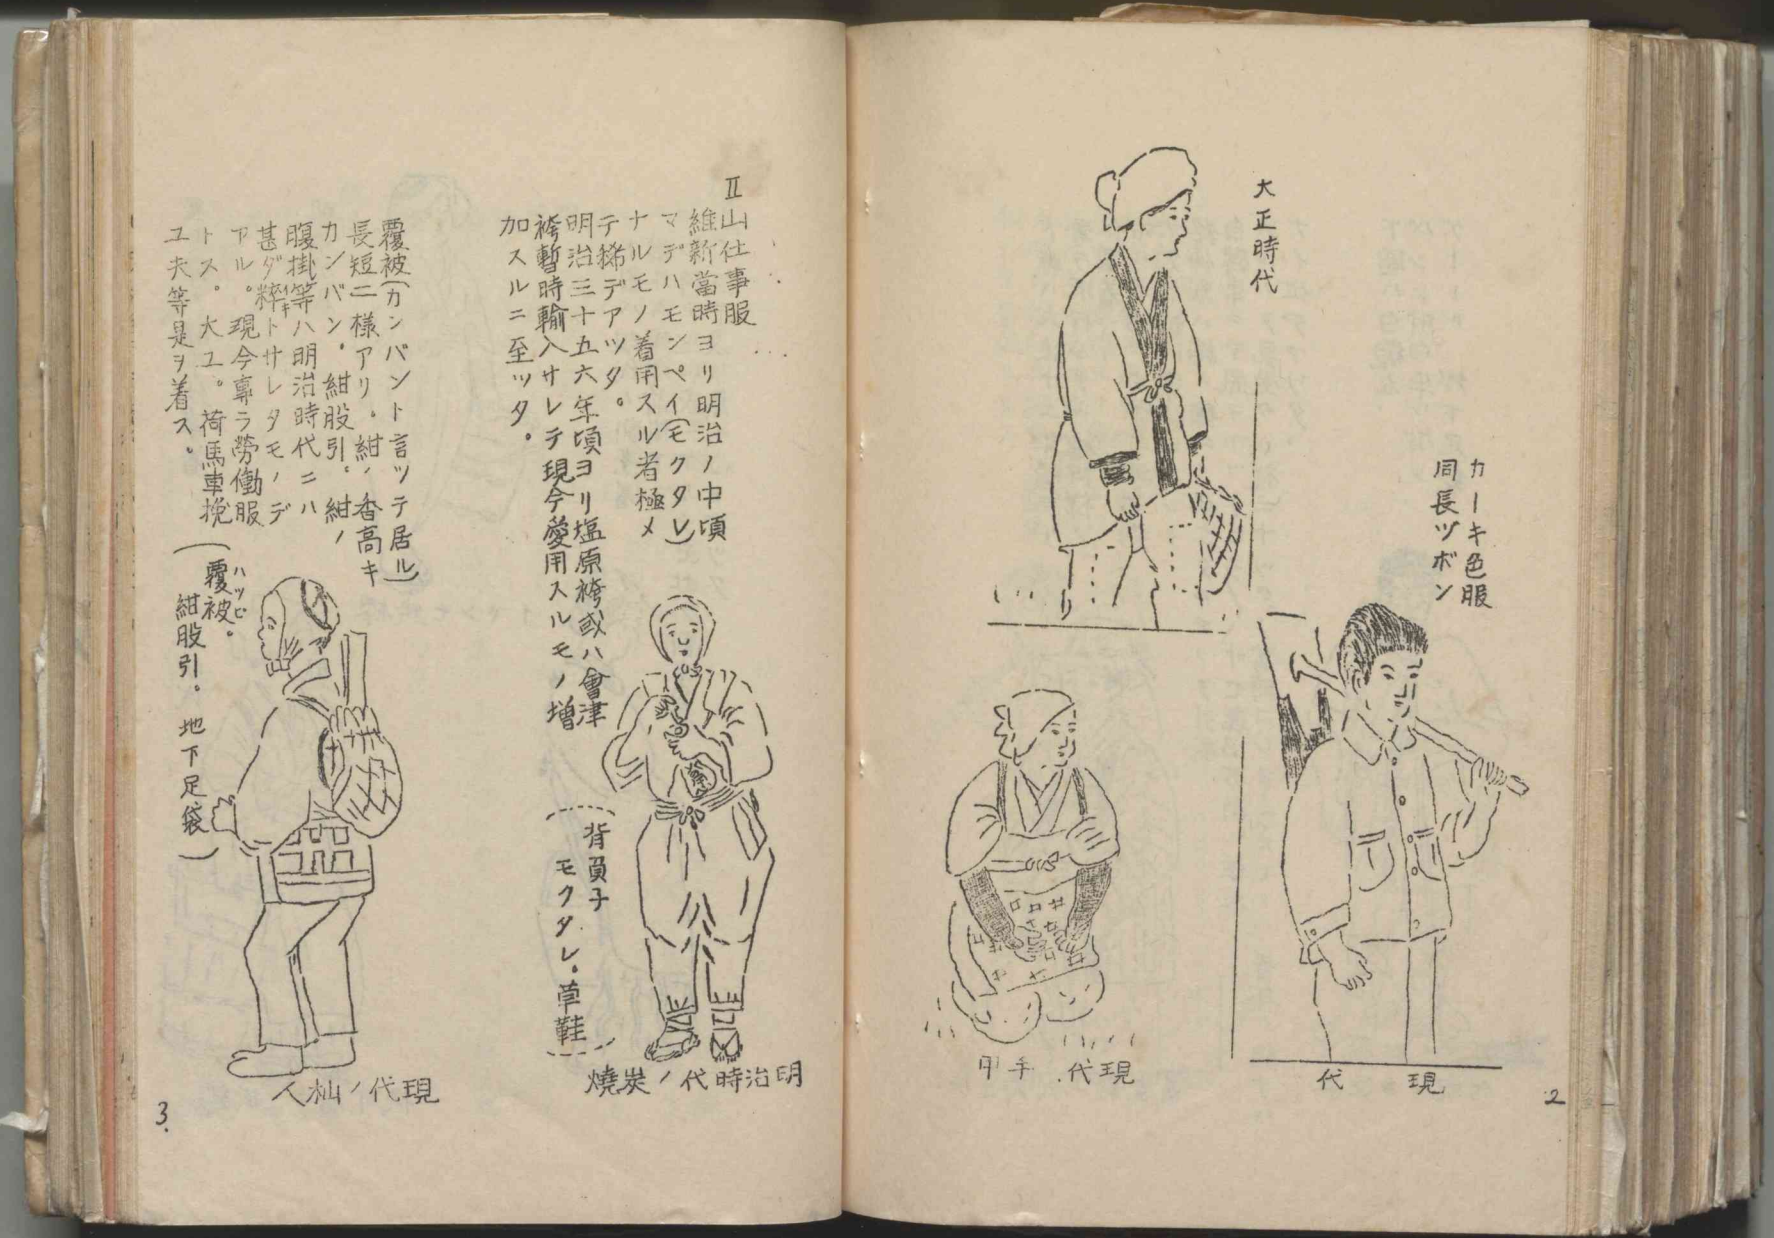 大正時代
カーキ色服
同長ヅボン
現代
現代.手甲
2
Ⅱ山仕事服
維新當時ヨリ明治ノ中頃
マデハモンペイ(モクタレ)
ナルモノ着用スル者極メ
テ稀デアツタ。
明治三十五六年頃ヨリ塩原袴或ハ會津
袴暫時輸入サレテ現今愛用スルモノ増
加スルニ至ツタ。
明治時代ノ炭燒
背負子
モクタレ。草鞋
覆被(カンバント言ツテ居ル)
長短二様アリ。紺ノ香高キ
カンバン。紺股引。紺ノ
腹掛等ハ明治時代ニハ
甚ダ粹トサレタモノデ
アル。現今專ラ勞働服
トス。大工。荷馬車挽
工夫等是ヲ着ス。
(覆被。ハッピ
紺股引。地下足袋)
現代ノ杣人
3.